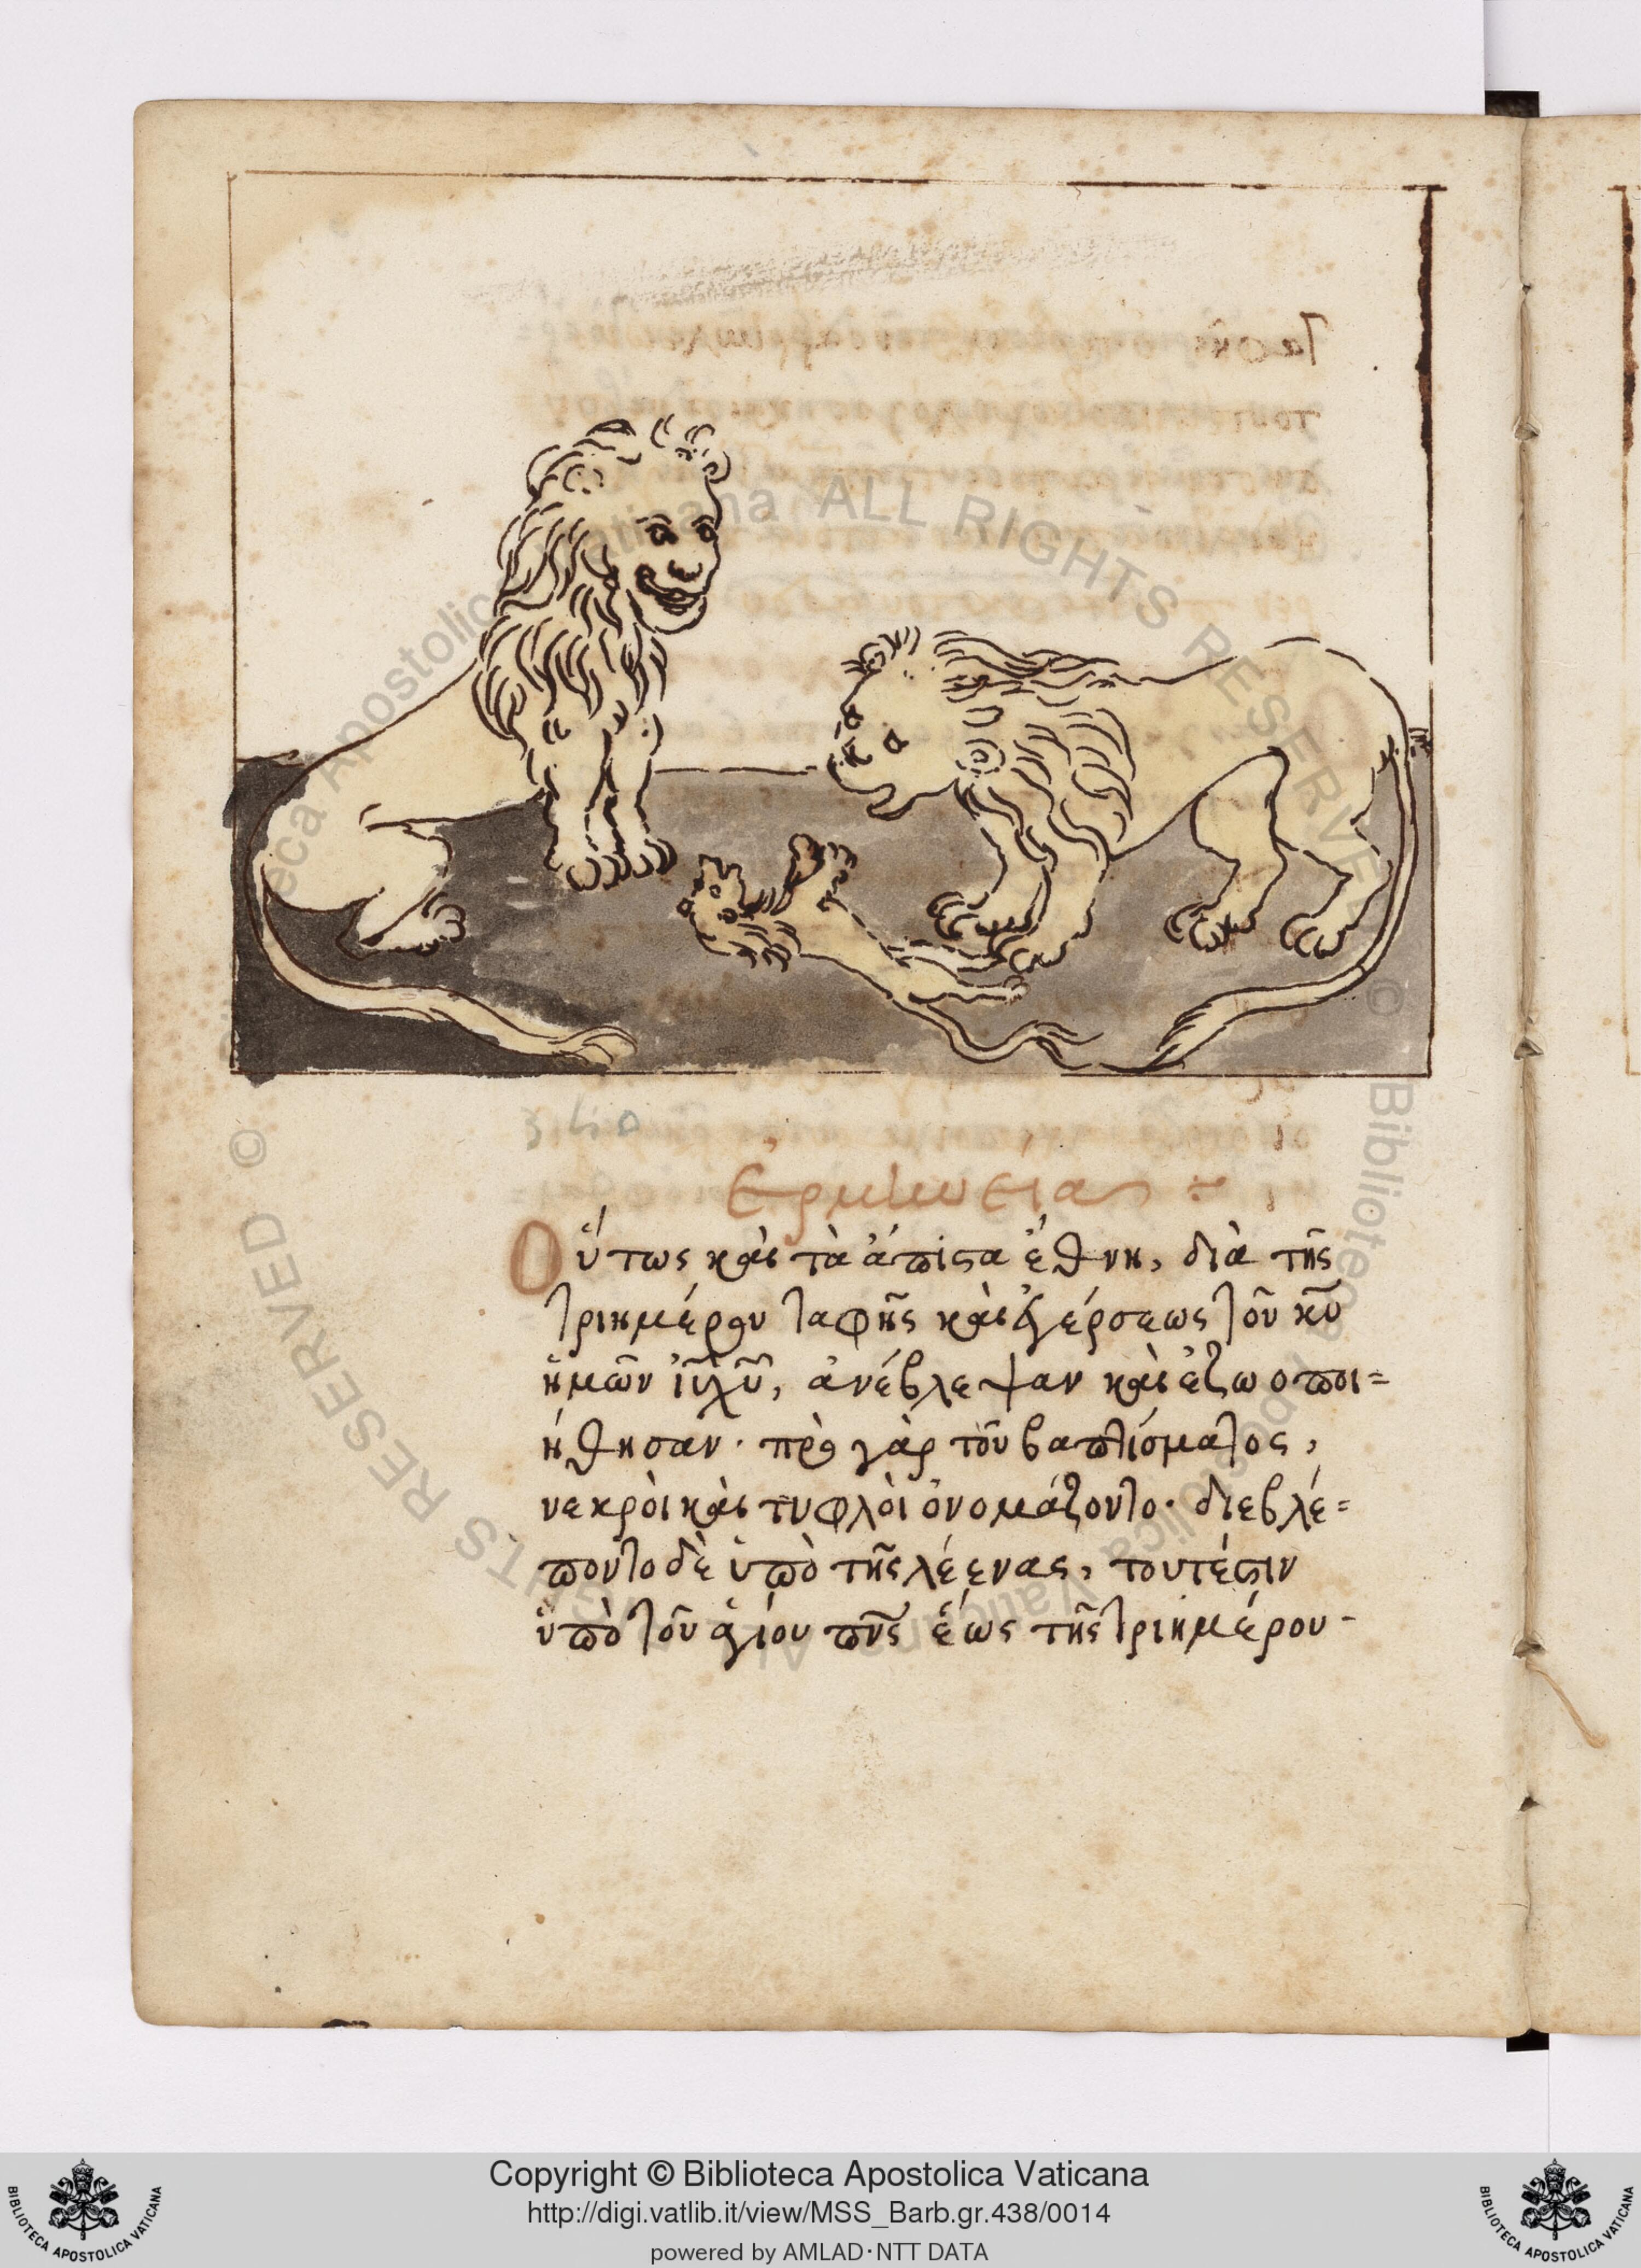 Ερμηνεία :~
Οὕτως καὶ τὰ ἄπιϛα ἔθνη, διὰ τῆς
τριημέρου ταφῆς καὶ ἐγέρσεως τοῦ κῡ
ἡμῶν ἰῡ χῡ, ἀνέβλεψαν καὶ ἐζωοποι=
ήθησαν· πρὸ γὰρ τοῦ βαπτίσματος,
νεκροὶ καὶ τυφλοὶ ὀνομάζοντο· διεβλέ=
ποντο δὲ ὑπὸ τῆς λέενας, τουτέϛιν
ὑπὸ τοῦ ἁγίου πνς ἕως τῆς τριημέρου-
Copyright © Biblioteca Apostolica Vaticana
http://digi.vatlib.it/view/MSS_Barb.gr.438/0014
powered by AMLAD·NTT DATA
BIBLIOTECA APOSTOLICA VATICANA
BIBLIOTECA APOSTOLICA VATICANA
© Biblioteca Apostolica Vaticana ALL RIGHTS RESERVED
© Biblioteca Apostolica Vaticana ALL RIGHTS RESERVED